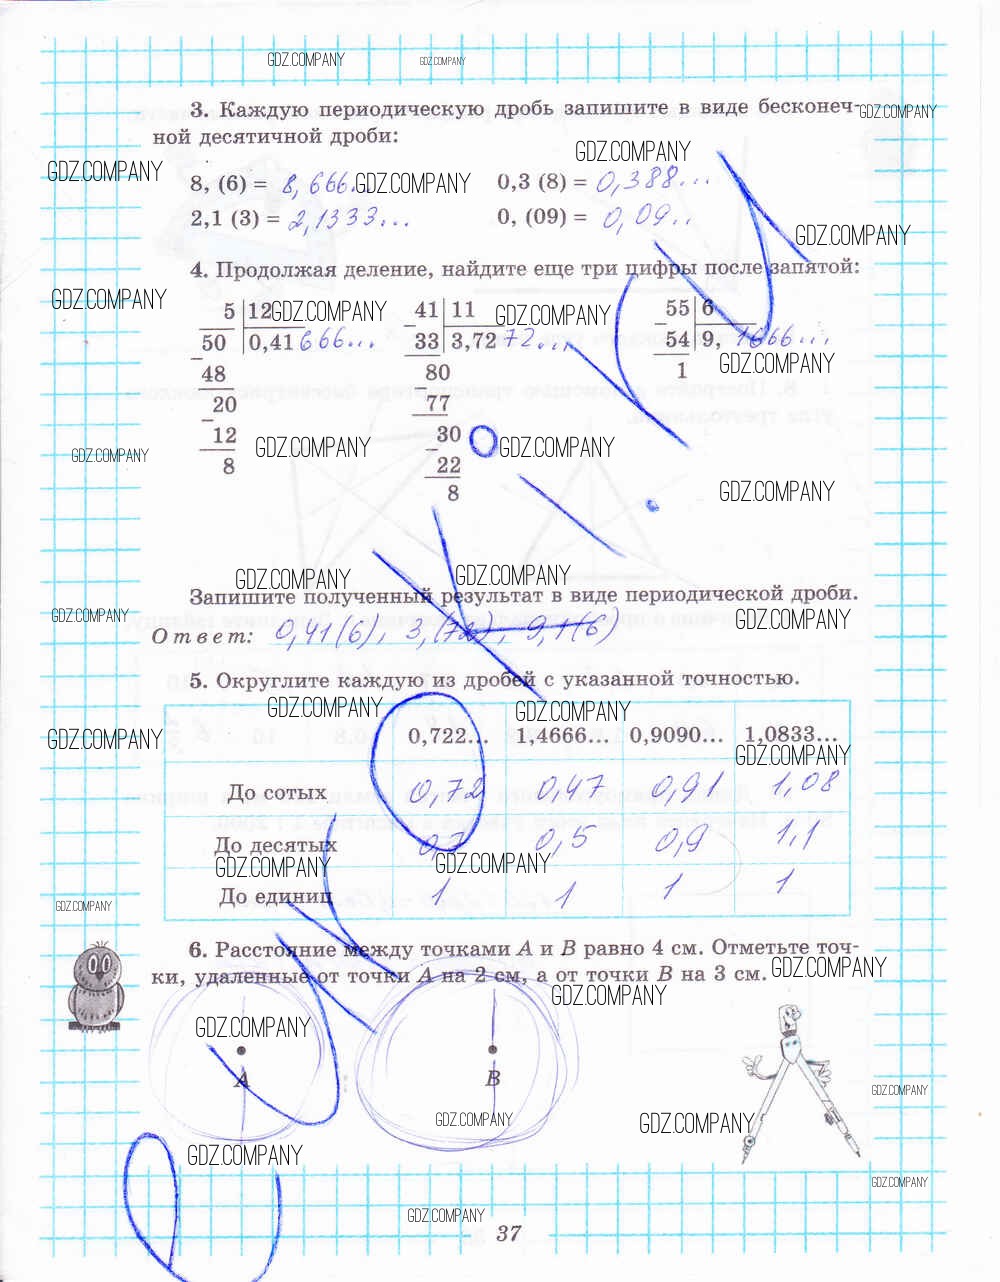 GDZ.COMPANY GDZ.COMPANY
3. Каждую периодическую дробь запишите в виде бесконеч-
GDZ.COMPANY
ной десятичной дроби:
GDZ.COMPANY
GDZ.COMPANY
8, (6) = 8,666... GDZ.COMPANY 0,3 (8) = 0,388...
2,1 (3) = 2,1333... 0, (09) = 0,09..
GDZ.COMPANY
4. Продолжая деление, найдите еще три цифры после запятой:
GDZ.COMPANY
5 12 GDZ.COMPANY 41 11 GDZ.COMPANY 55 6
50 0,41666... 33 3,7272... 54 9,1666...
GDZ.COMPANY
48 80 1
20 77
12 30
GDZ.COMPANY GDZ.COMPANY GDZ.COMPANY
8 22
8
GDZ.COMPANY
GDZ.COMPANY GDZ.COMPANY
Запишите полученный результат в виде периодической дроби.
GDZ.COMPANY GDZ.COMPANY
Ответ: 0,41(6), 3,(72), 9,1(6)
5. Округлите каждую из дробей с указанной точностью.
GDZ.COMPANY GDZ.COMPANY
GDZ.COMPANY 0,722... 1,4666... 0,9090... 1,0833...
GDZ.COMPANY
До сотых 0,72 0,47 0,91 1,08
До десятых 0,7 0,5 0,9 1,1
GDZ.COMPANY GDZ.COMPANY
До единиц 1 1 1 1
GDZ.COMPANY
6. Расстояние между точками A и B равно 4 см. Отметьте точ-
ки, удаленные от точки A на 2 см, а от точки B на 3 см. GDZ.COMPANY
GDZ.COMPANY
GDZ.COMPANY
A B
GDZ.COMPANY
GDZ.COMPANY GDZ.COMPANY
GDZ.COMPANY
GDZ.COMPANY
GDZ.COMPANY
37